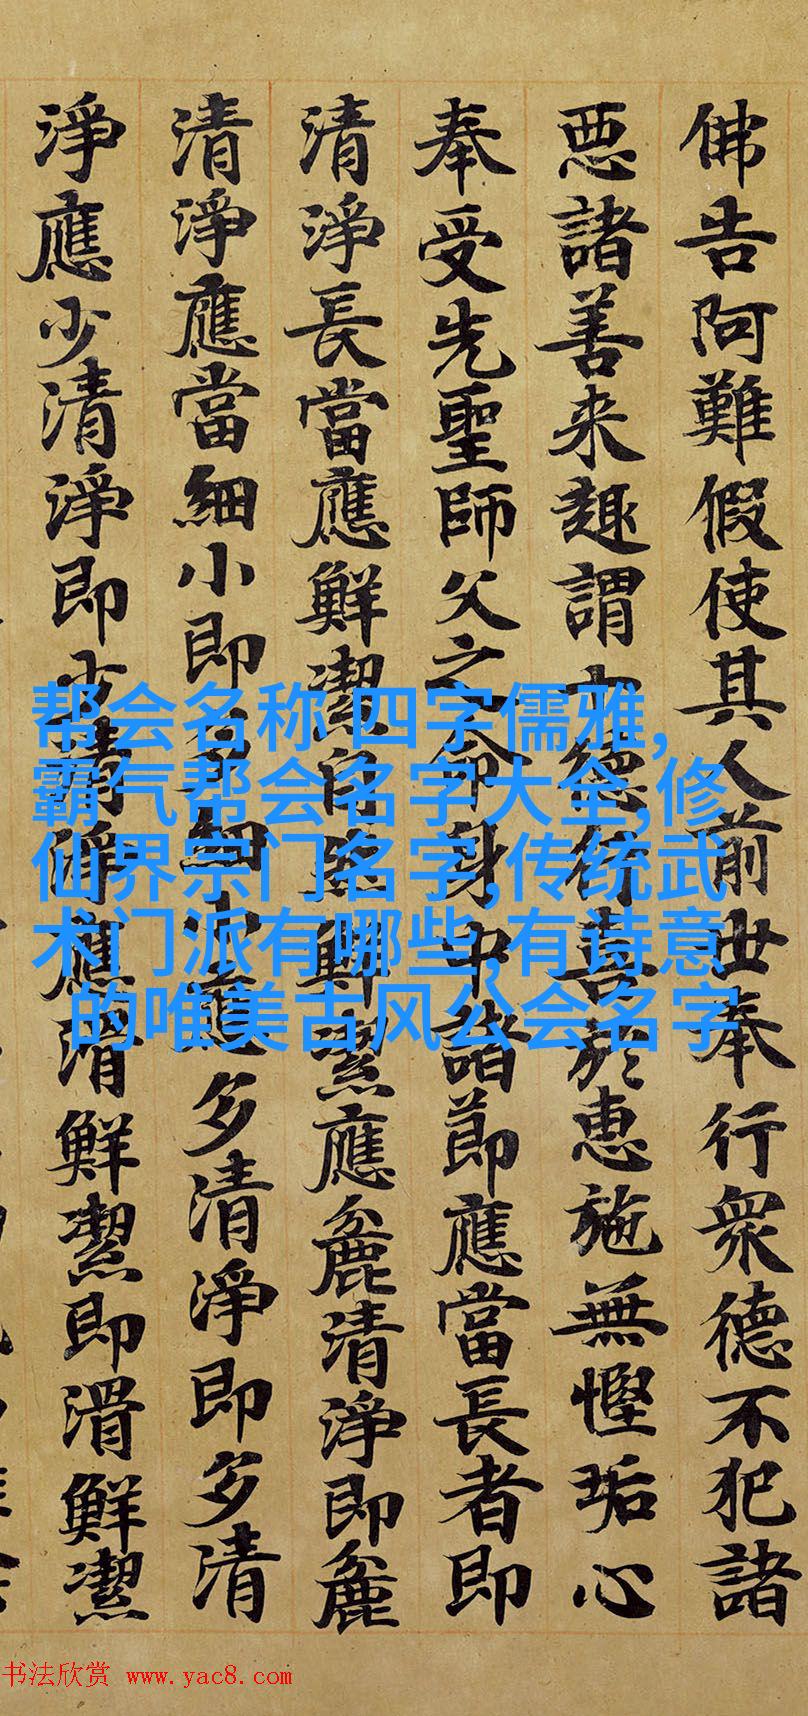 佛告阿難假使其人前世奉行眾德不犯諸
惡諸善来趣謂德行喜於惠施無慳垢心
奉受先聖師父之命身中諸節應當長者即
清淨長當應鮮潔自然鮮潔應麁清淨即麁
清淨應當細小即細小應多清淨即多清
淨應少清淨即少清淨應滑鮮潔即滑鮮潔
帮会名称 四字儒雅,
霸气帮会名字大全,修
仙界宗门名字,传统武
术门派有哪些,有诗意
的唯美古风公会名字
书法欣赏 www.yac8.com